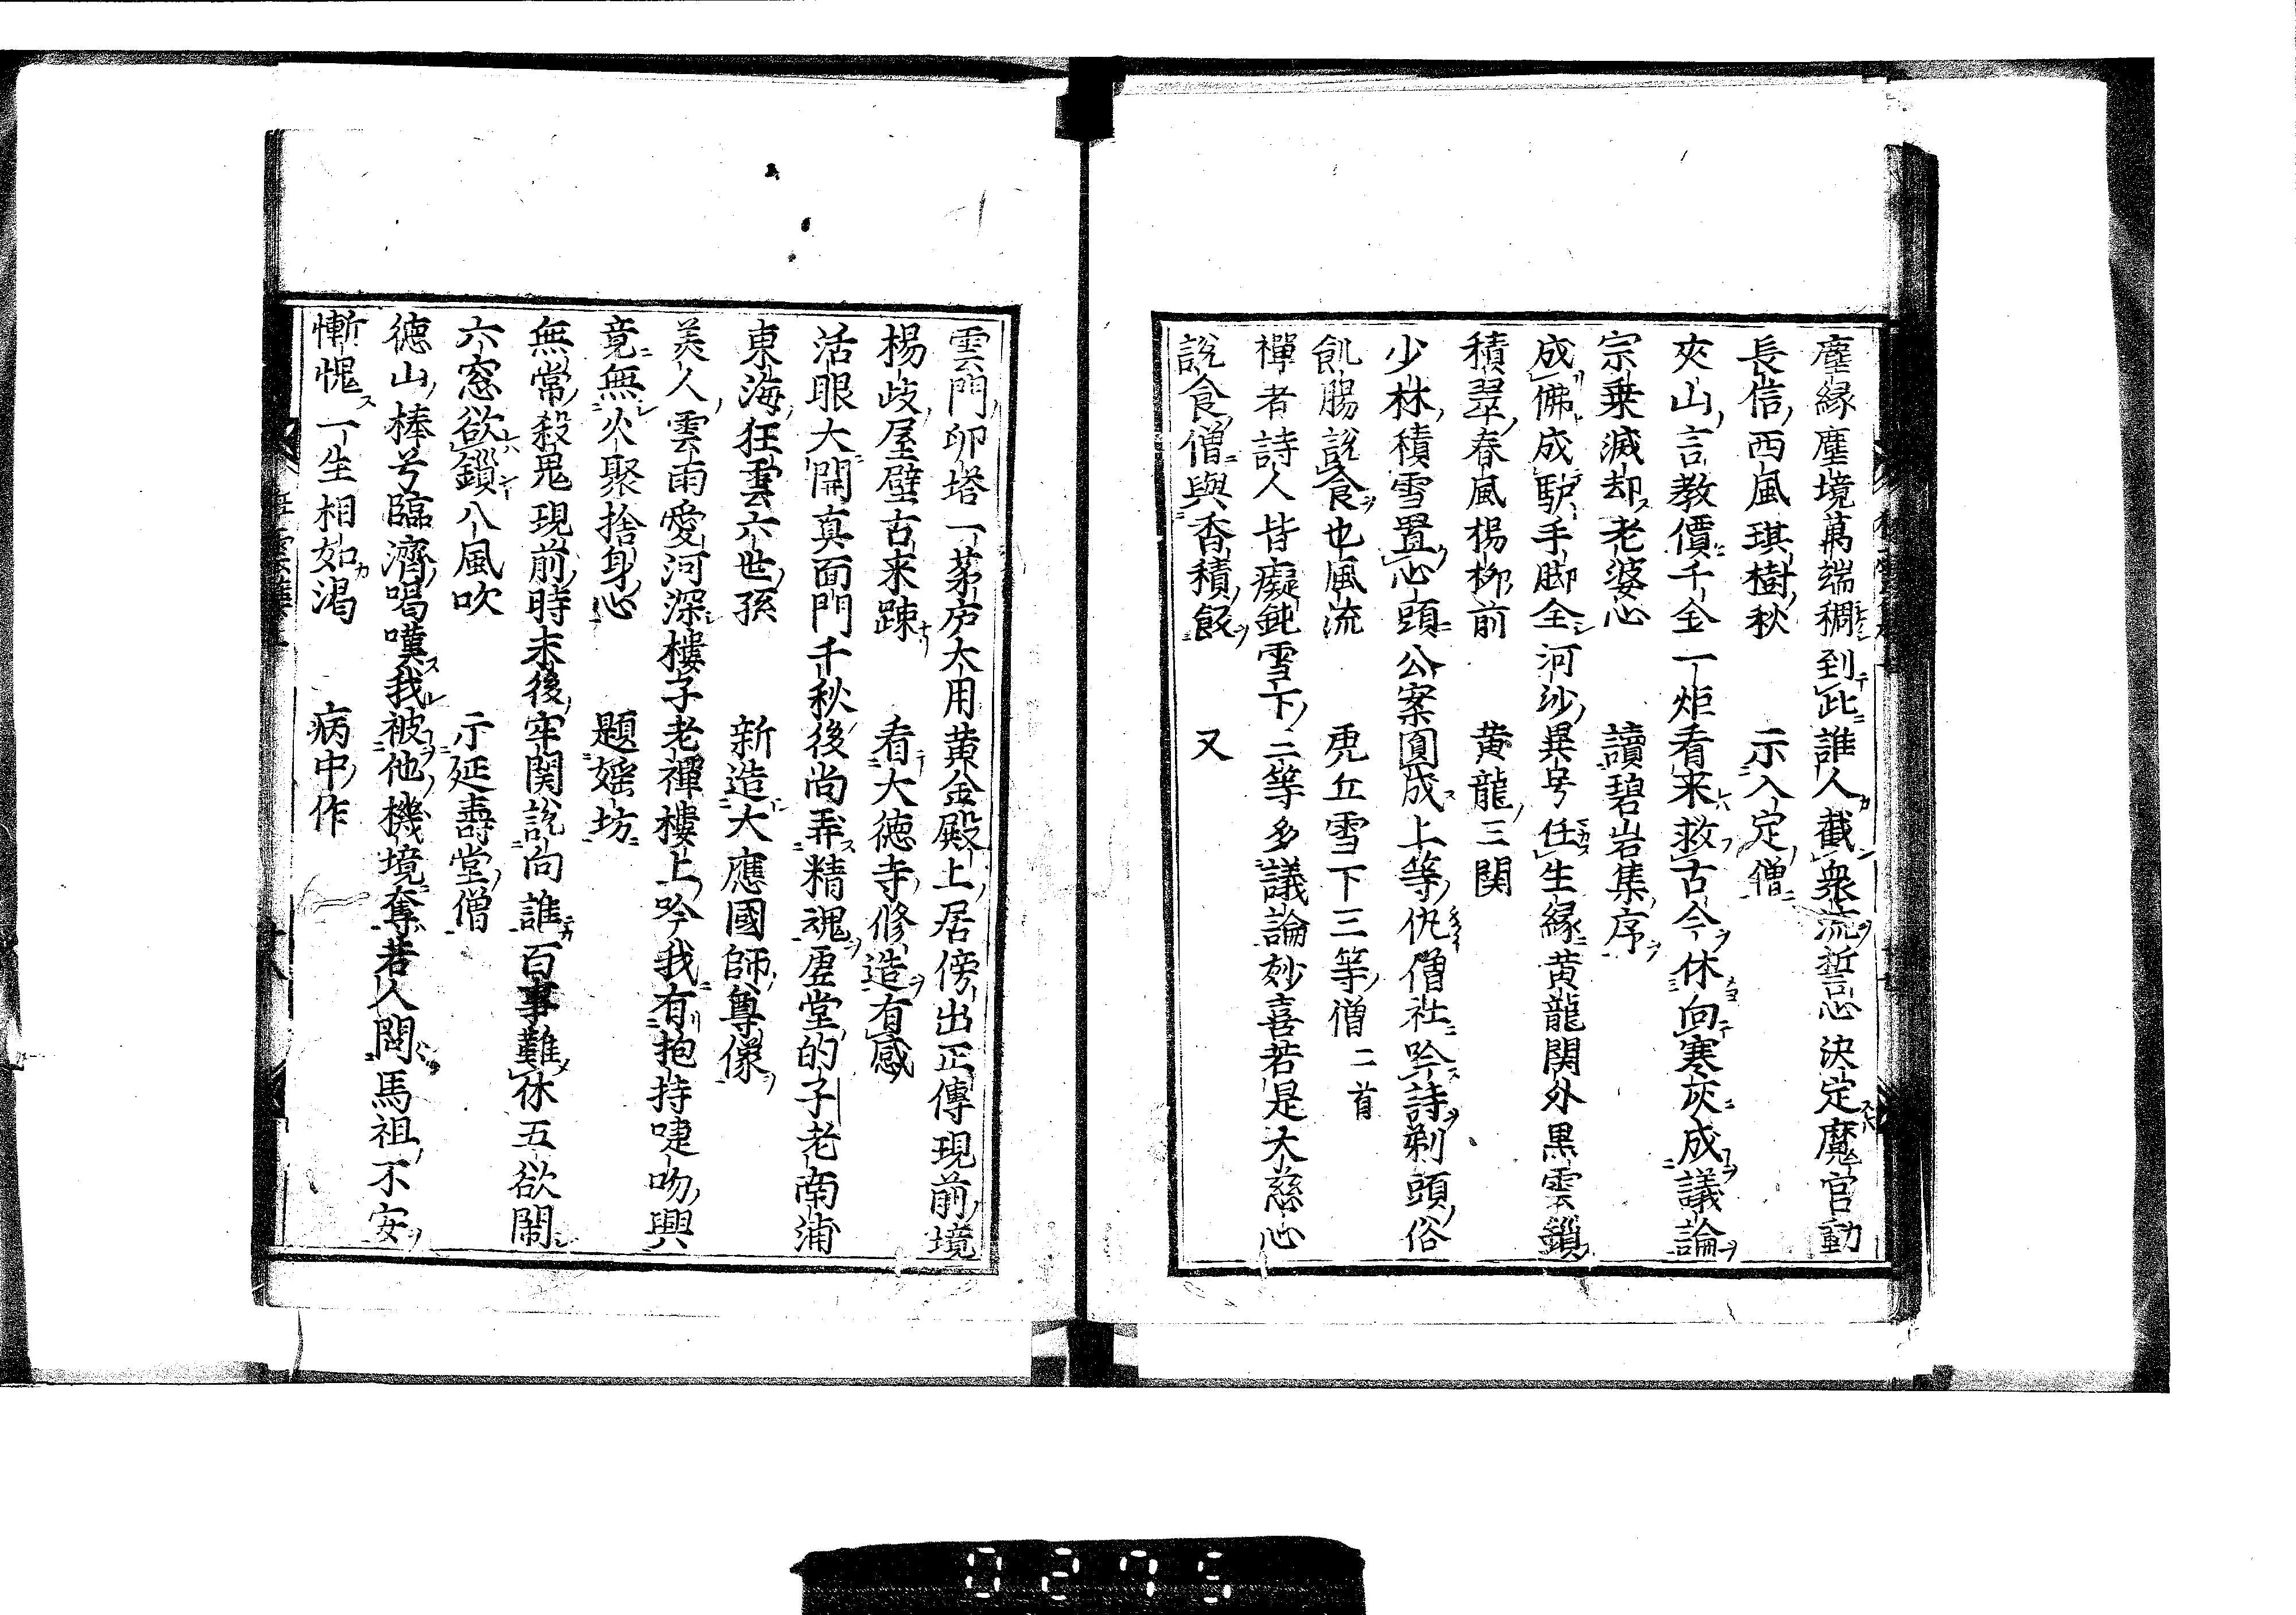 塵縁塵境萬端稠到此誰人截衆流誓心決定魔宮動
長信西風琪樹秋　示入定僧
夾山言教價千金一炬看来救古今休向寒灰成議論
宗乗滅却老婆心　讀碧岩集序
成佛成馿手脚全河沙異号任生縁黄龍関外黒雲鎖
積翠春風楊栁前　黄龍三関
少林積雪置心頭公案圓成上等仇僧社吟詩剃頭俗
飢腸説食也風流　虎丘雪下三等僧二首
禪者詩人皆癡鈍雪下二等多議論妙喜若是大慈心
説食僧與香積飯　又
雲門卯塔一茅庐大用黄金殿上居傍出正傳現前境
楊歧屋壁古来踈　看大徳寺修造有感
活眼大開真面門千秋後尚弄精魂虚堂的子老南浦
東海狂雲六世孫　新造大應國師尊像
美人雲雨愛河深樓子老禪樓上吟我有抱持啑吻興
竟無火聚捨身心　題婬坊
無常殺鬼現前時末後牢関説向誰百事難休五欲閙
六窓欲鎖八風吹　示延壽堂僧
徳山棒兮臨濟喝嘆我被他機境奪若人問馬祖不安
慚愧一生相如渇　病中作
十八
0275